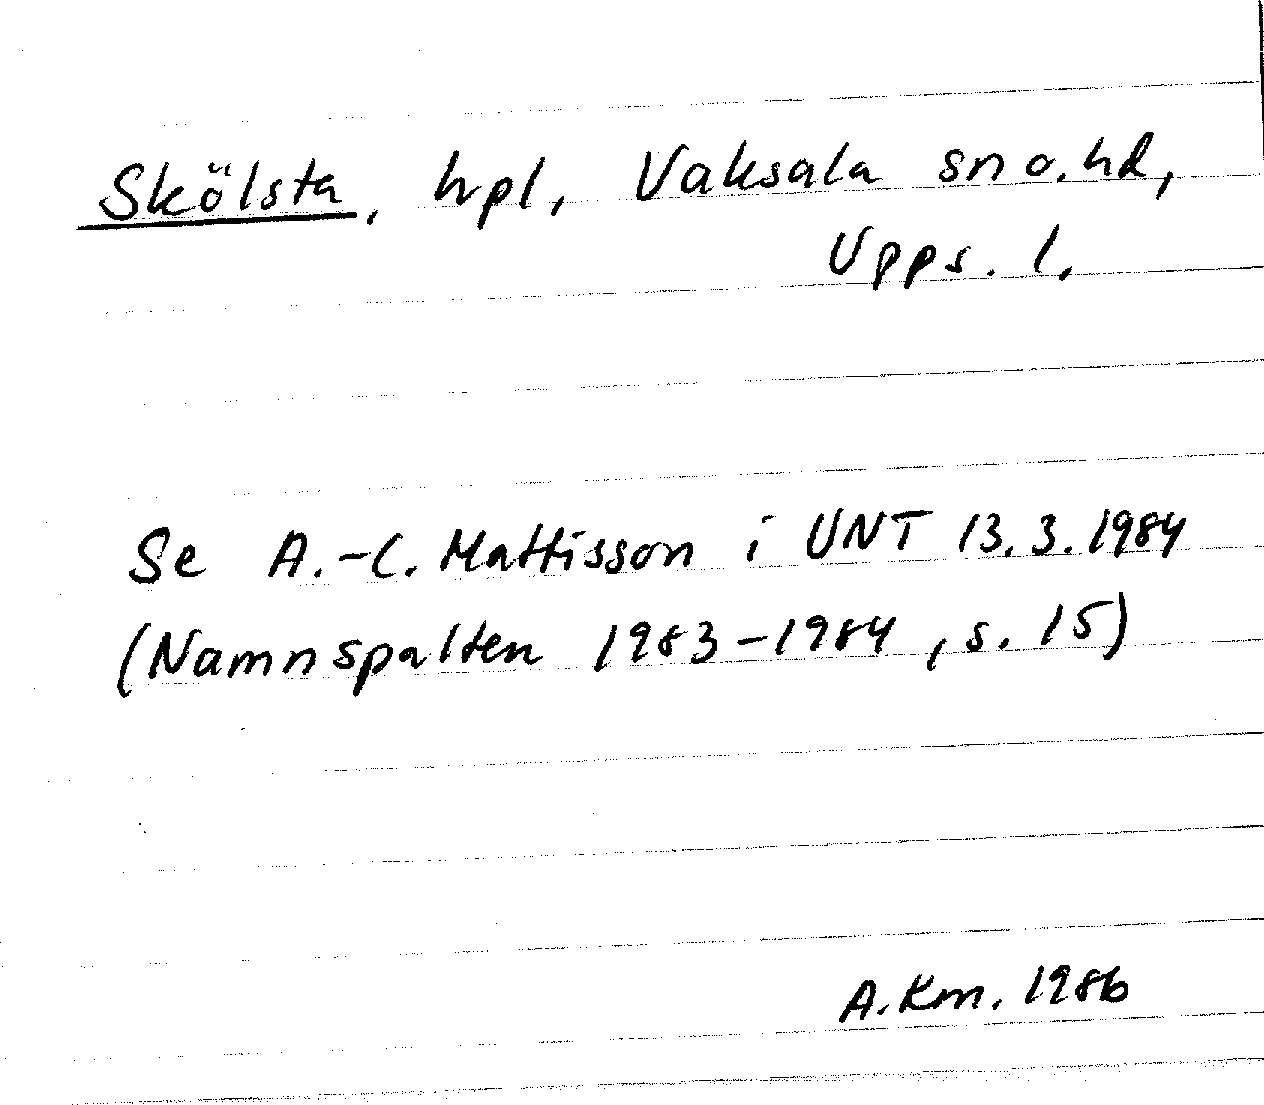 Skölsta, hpl, Vaksala sn o. hd,
Upps. l.
Se A.-C. Mattisson i UNT 13.3.1984
(Namnspalten 1983-1984, s. 15)
A. Km. 1986